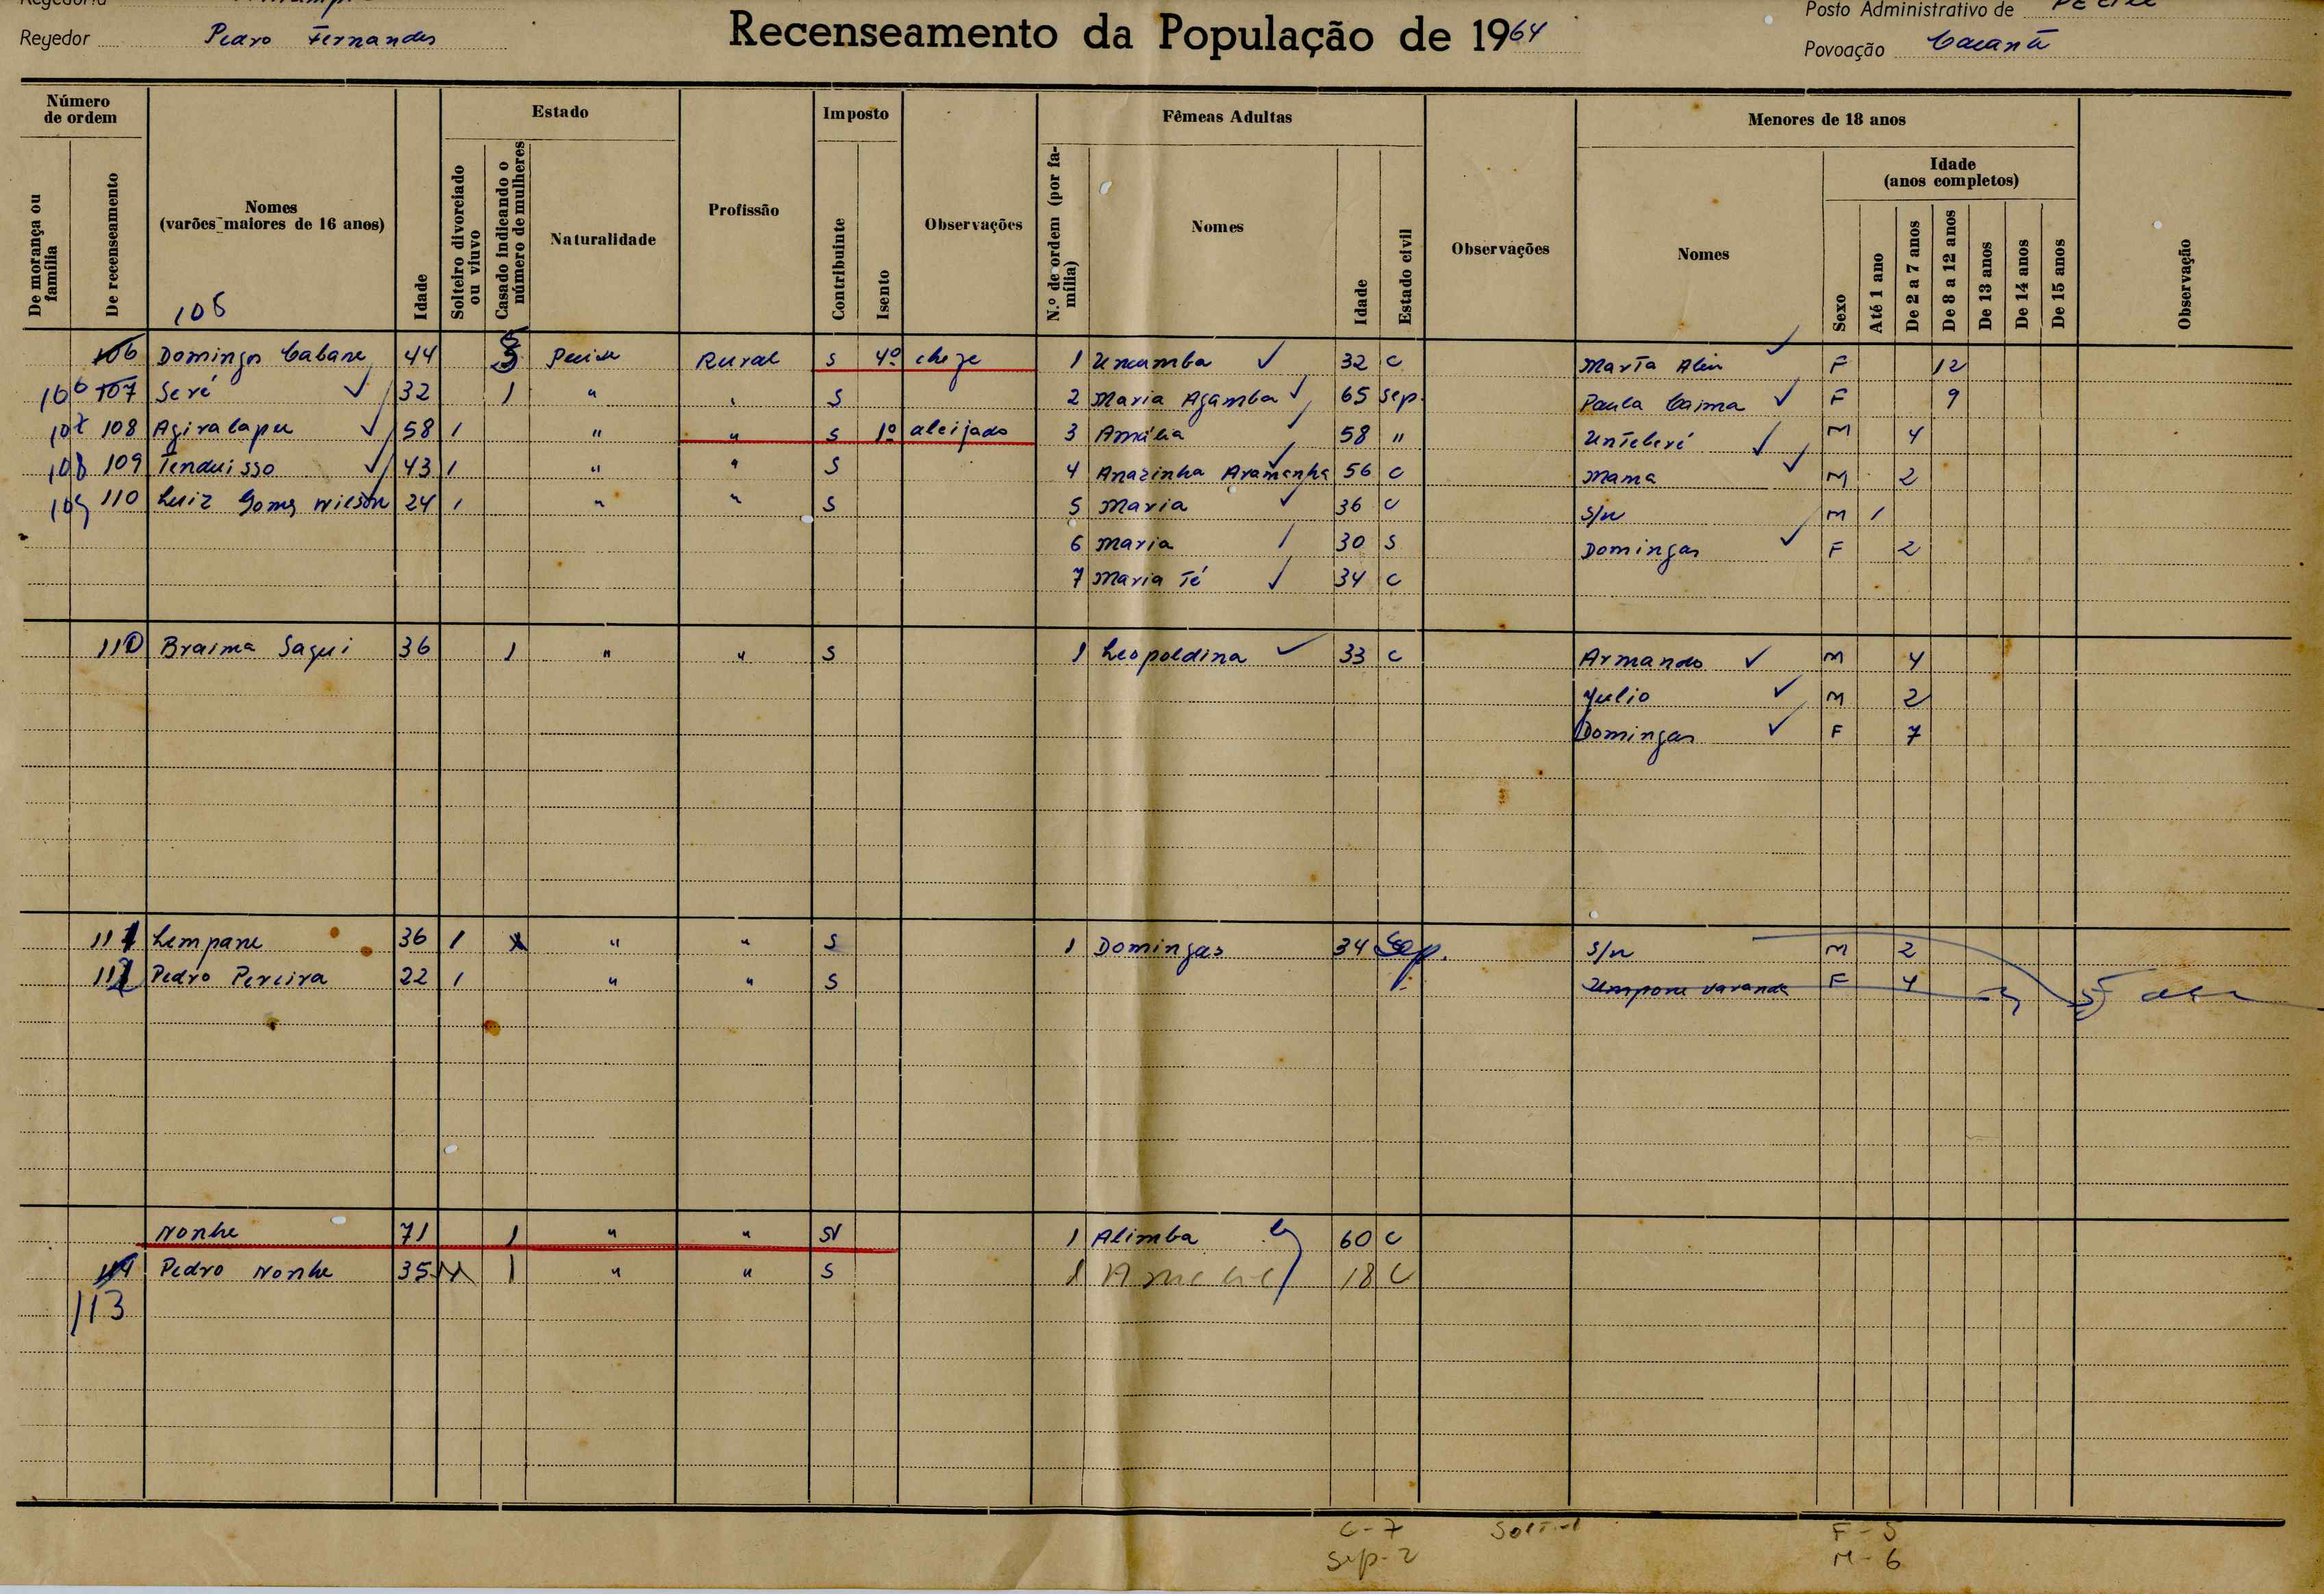 Regedor Pedro Fernandes
Recenseamento da População de 1964
Posto Administrativo de
Povoação
Número de ordem
De morança ou família
De recenseamento
Nomes (varões maiores de 16 anos)
Idade
Estado
Solteiro divorciado ou viuvo
Casado indicando o número de mulheres
Naturalidade
Profissão
Imposto
Contribuinte
Isento
Observações
Fêmeas Adultas
N.º de ordem (por família)
Nomes
Idade
Estado civil
Observações
Menores de 18 anos
Nomes
Sexo
Idade (anos completos)
Até 1 ano
De 2 a 7 anos
De 8 a 12 anos
De 13 anos
De 14 anos
De 15 anos
Observação
105
106 Domingos Cabane 44 Rural S 4º 1 Uncamba 32 C F 12
106 107 Seré 32 1 " " S 2 Maria Agamba 65 Sep. Paula Caima F 9
107 108 58 1 " " S 1º aleijado 3 Amélia 58 " M 4
108 109 Tenduisso 43 1 " " S 4 Anazinha Aramanha 56 C Mama M 2
109 110 Luiz Gomes Wilson 24 1 " " S 5 Maria 36 C S/n M 1
6 Maria 30 S Domingas F 2
7 Maria Té 34 C
110 Braima Sagui 36 1 " " S 1 Leopoldina 33 C Armando M 4
Julio M 2
Domingas F 7
111 Lempane 36 1 " " S 1 Domingas 34 Sep. S/n M 2
112 Pedro Pereira 22 1 " " S F 4
Nonhe 71 1 " " 1 Alimba 60 C
114 Pedro Nonhe 35 1 " " S 1 18 C
113
C - 7
Sep - 2
Solt - 1
F - 5
M - 6